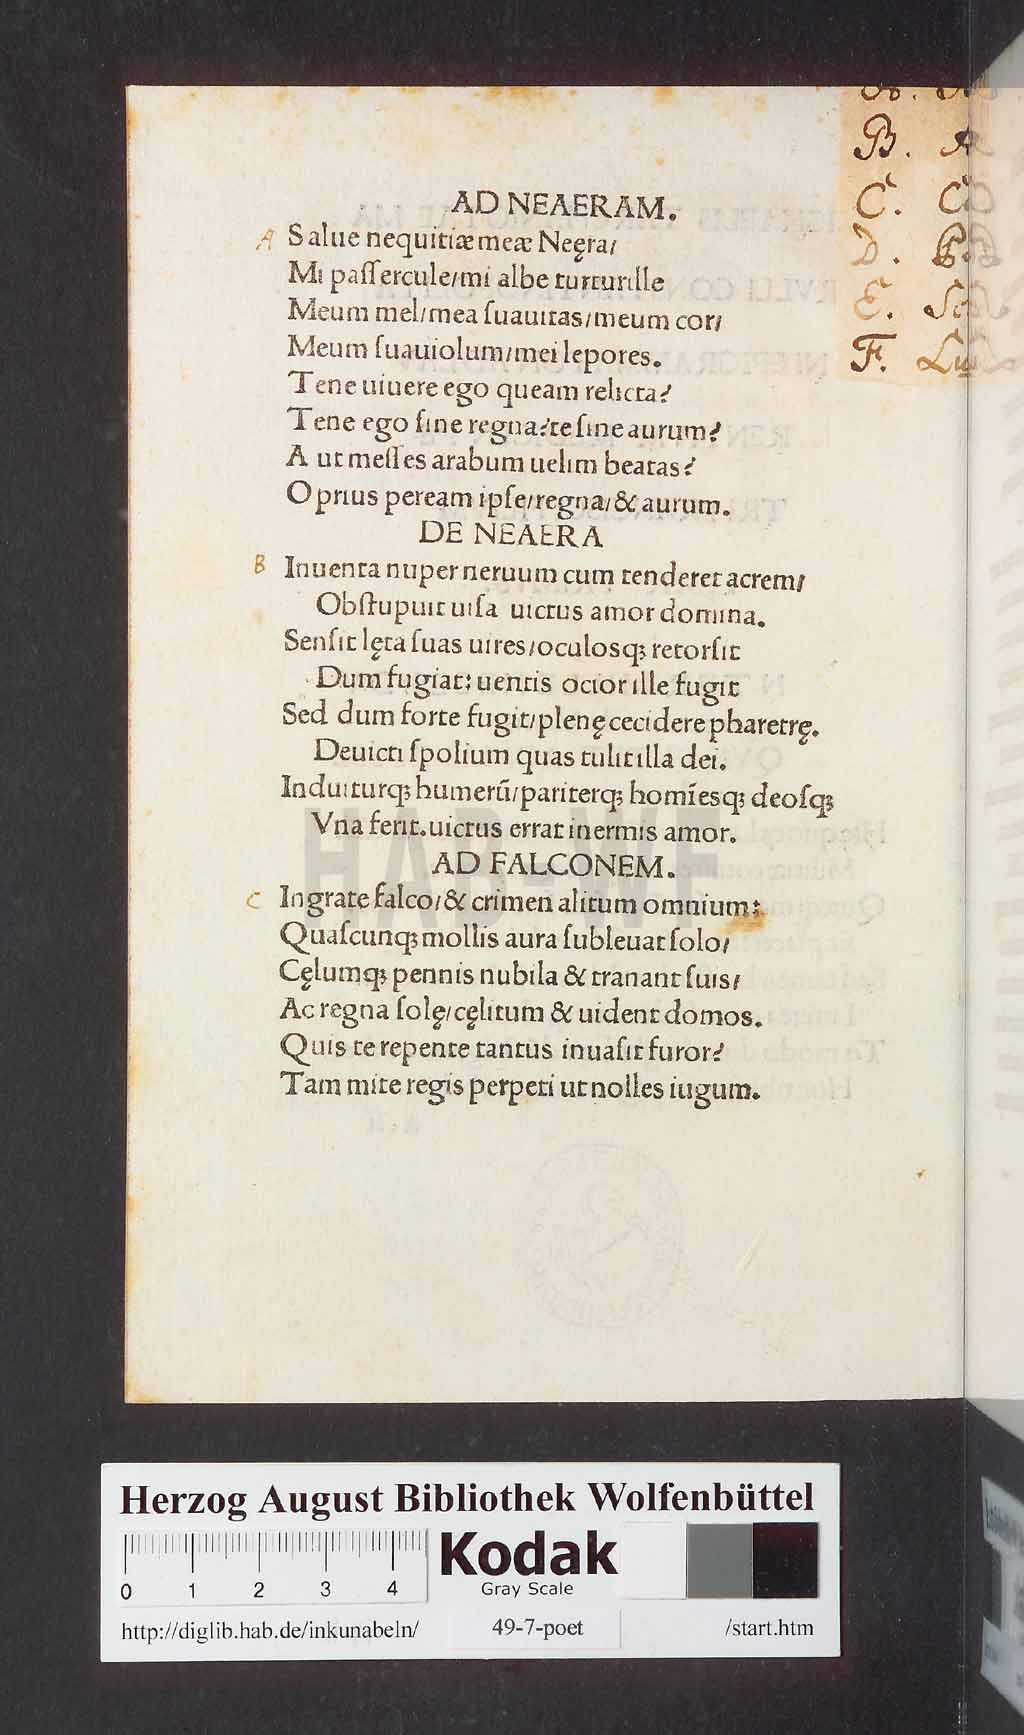 B. A
C. CD
D.
E.
F. Lu
AD NEAERAM.
A Salue nequitiæ meæ Neęra/
Mi paſſercule/mi albe turturille
Meum mel/mea ſuauitas/meum cor/
Meum ſuauiolum/mei lepores.
Tene uiuere ego queam relicta?
Tene ego ſine regna?te ſine aurum?
A ut meſſes arabum uelim beatas?
O prius peream ipſe/regna/& aurum.
DE NEAERA
B Inuenta nuper neruum cum tenderet acrem/
Obſtupuit uiſa uictus amor domina.
Senſit lęta ſuas uires/oculosqꝫ retorſit
Dum fugiat: uentis ocior ille fugit
Sed dum forte fugit/plenę cecidere pharetrę.
Deuicti ſpolium quas tulit illa dei.
Induiturqꝫ humerũ/pariterqꝫ homĩesqꝫ deoſqꝫ
Vna ferit.uictus errat inermis amor.
AD FALCONEM.
C Ingrate falco/& crimen alitum omnium:
Quaſcunqꝫ mollis aura ſubleuat ſolo/
Cęlumqꝫ pennis nubila & tranant ſuis/
Ac regna ſolę/cęlitum & uident domos.
Quis te repente tantus inuaſit furor?
Tam mite regis perpeti ut nolles iugum.
HAB-WF
Herzog August Bibliothek Wolfenbüttel
0 1 2 3 4
Kodak
Gray Scale
http://diglib.hab.de/inkunabeln/ 49-7-poet /start.htm